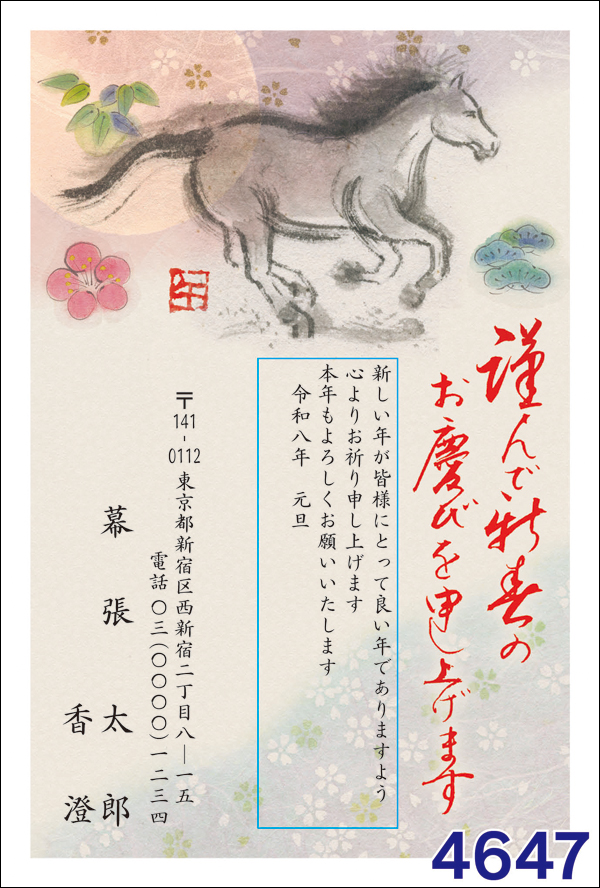 謹んで新春の
お慶びを申し上げます
新しい年が皆様にとって良い年でありますよう
心よりお祈り申し上げます
本年もよろしくお願いいたします
令和八年　元旦
〒141-0112 東京都新宿区西新宿二丁目八―一五
電話 〇三(〇〇〇〇)一二三四
幕張 太郎
香澄
4647